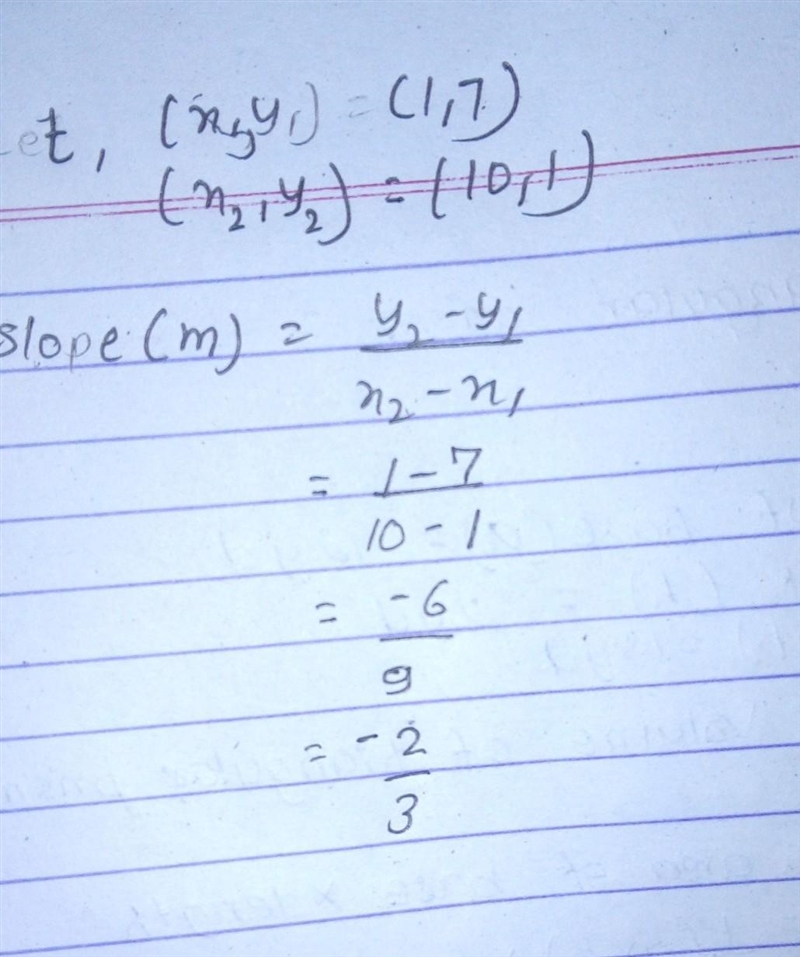 Let, (x₁, y₁) = (1, 7)
(x₂, y₂) = (10, 1)
slope (m) = y₂ - y₁ / x₂ - x₁
= 1 - 7 / 10 - 1
= -6 / 9
= -2 / 3